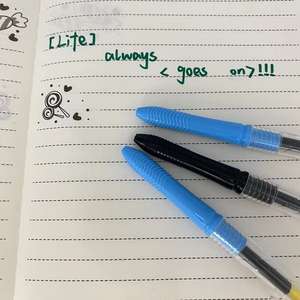 [Life]
always
< goes on>!!!